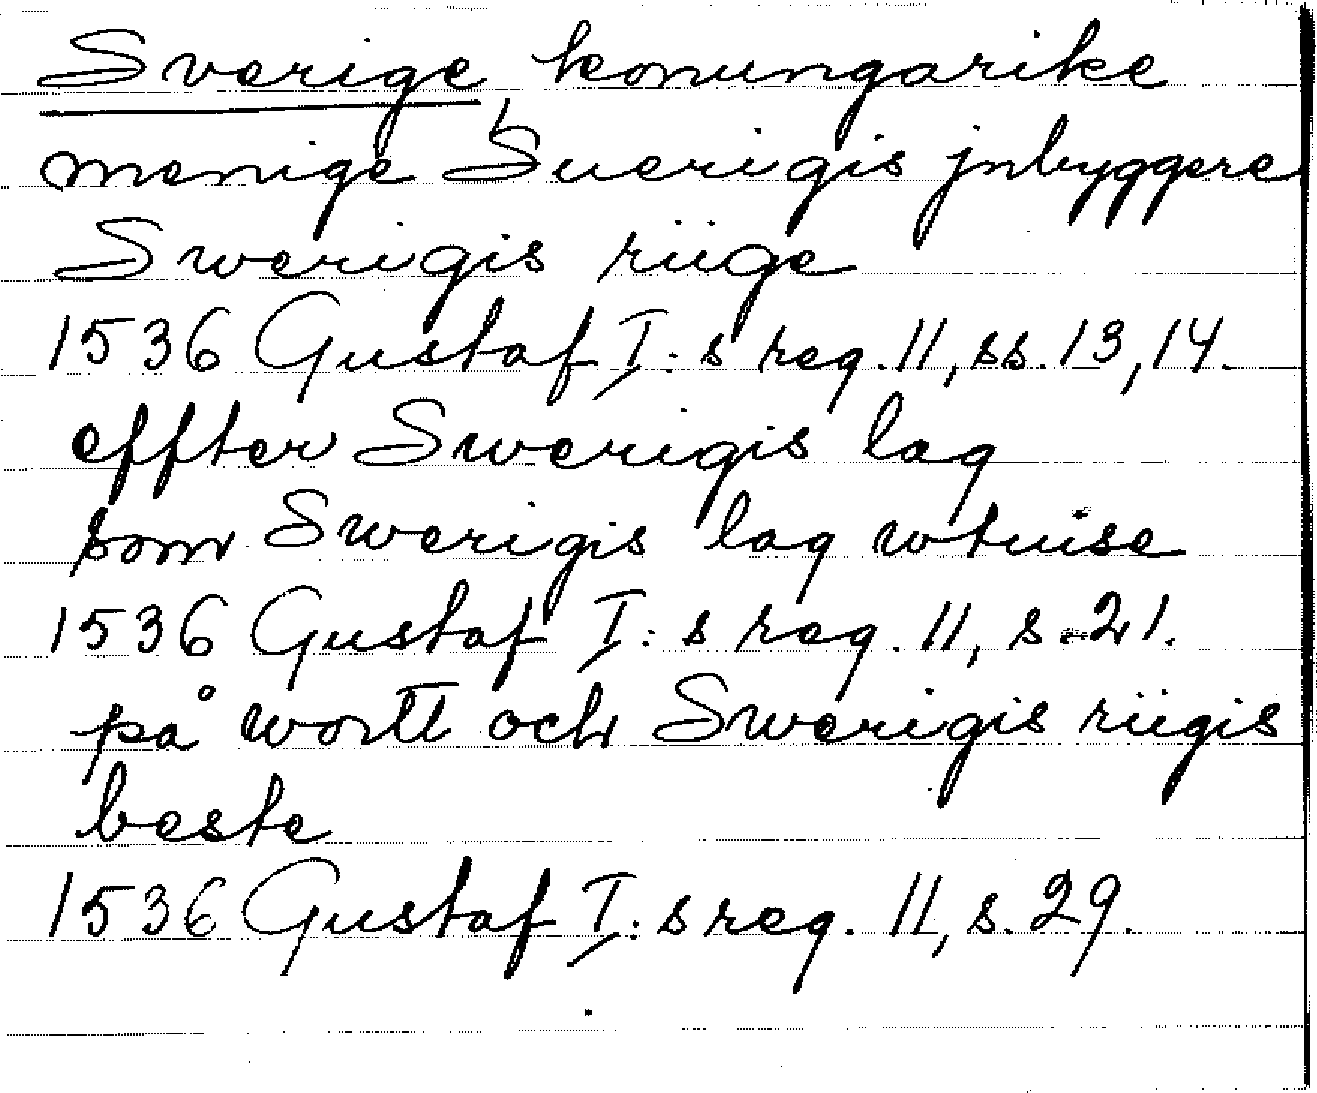 Sverige konungarike
menige Suerigis jnbyggere
Swerigis riige
1536 Gustaf I:s reg. 11, ss. 13, 14.
effter Swerigis lag
som Swerigis lag wtuise
1536 Gustaf I:s reg. 11, s. 21.
på wortt och Swerigis riigis
beste
1536 Gustaf I:s reg. 11, s. 29.